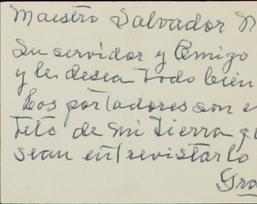 Maestro Salvador
Su servidor y Amigo
y le desea todo bien
Los portadores son
teto de mi tierra
sean entrevistarlo